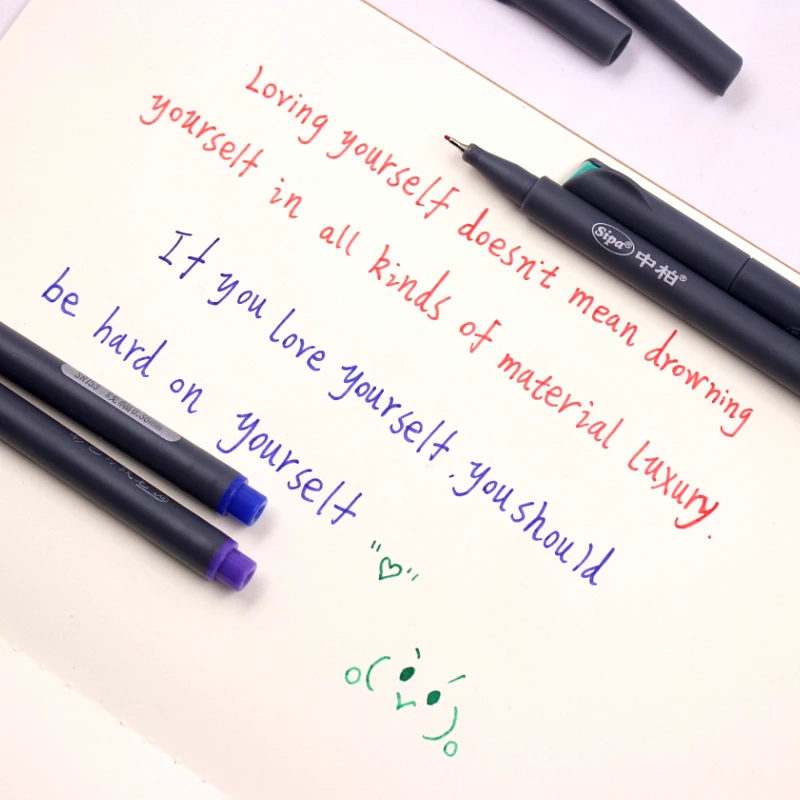 Loving yourself doesn't mean drowning
yourself in all kinds of material luxury.
If you love yourself, you should
be hard on yourself
Sipa® 中柏®
SR153 0.38mm